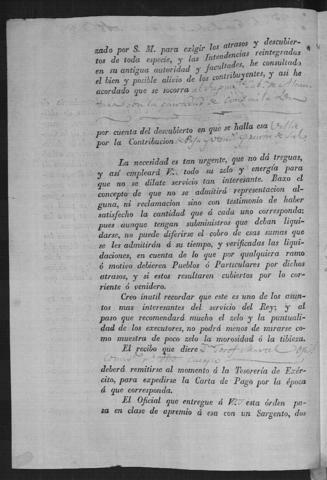 zado por S. M. para exigir los atrasos y descubier-
tos de toda especie, y las Intendencias reintegradas
en su antigua autoridad y facultades, he consultado
el bien y posible alivio de los contribuyentes, y asi he
acordado que se socorra al
con la cantidad de
por cuenta del descubierto en que se halla esa Villa
por la Contribucion
La necesidad es tan urgente, que no dá treguas,
y asi empleará V. todo su zelo y energía para
que no se dilate servicio tan interesante. Baxo el
concepto de que no se admitirá representacion al-
guna, ni reclamacion sino con testimonio de haber
satisfecho la cantidad que á cada uno corresponda;
pues aunque tengan subministros que deban liqui-
darse, no puede diferirse el cobro de esas sumas que
se les admitirán á su tiempo, y verificadas las liqui-
daciones, en cuenta de lo que por qualquiera ramo
ó motivo debieren Pueblos ó Particulares por dichos
atrasos, y si estos resultaren cubiertos por lo cor-
riente ó venidero.
Creo inutil recordar que este es uno de los asun-
tos mas interesantes del servicio del Rey; y al
paso que recomendará mucho el zelo y la puntuali-
dad de los executores, no podrá menos de mirarse co-
mo muestra de poco zelo la morosidad ó la tibieza.
El recibo que diere
deberá remitirse al momento á la Tesorería de Exér-
cito, para expedirse la Carta de Pago por la época
á que corresponda.
El Oficial que entregue á V. esta órden pa-
sa en clase de apremio á esa con un Sargento, dos